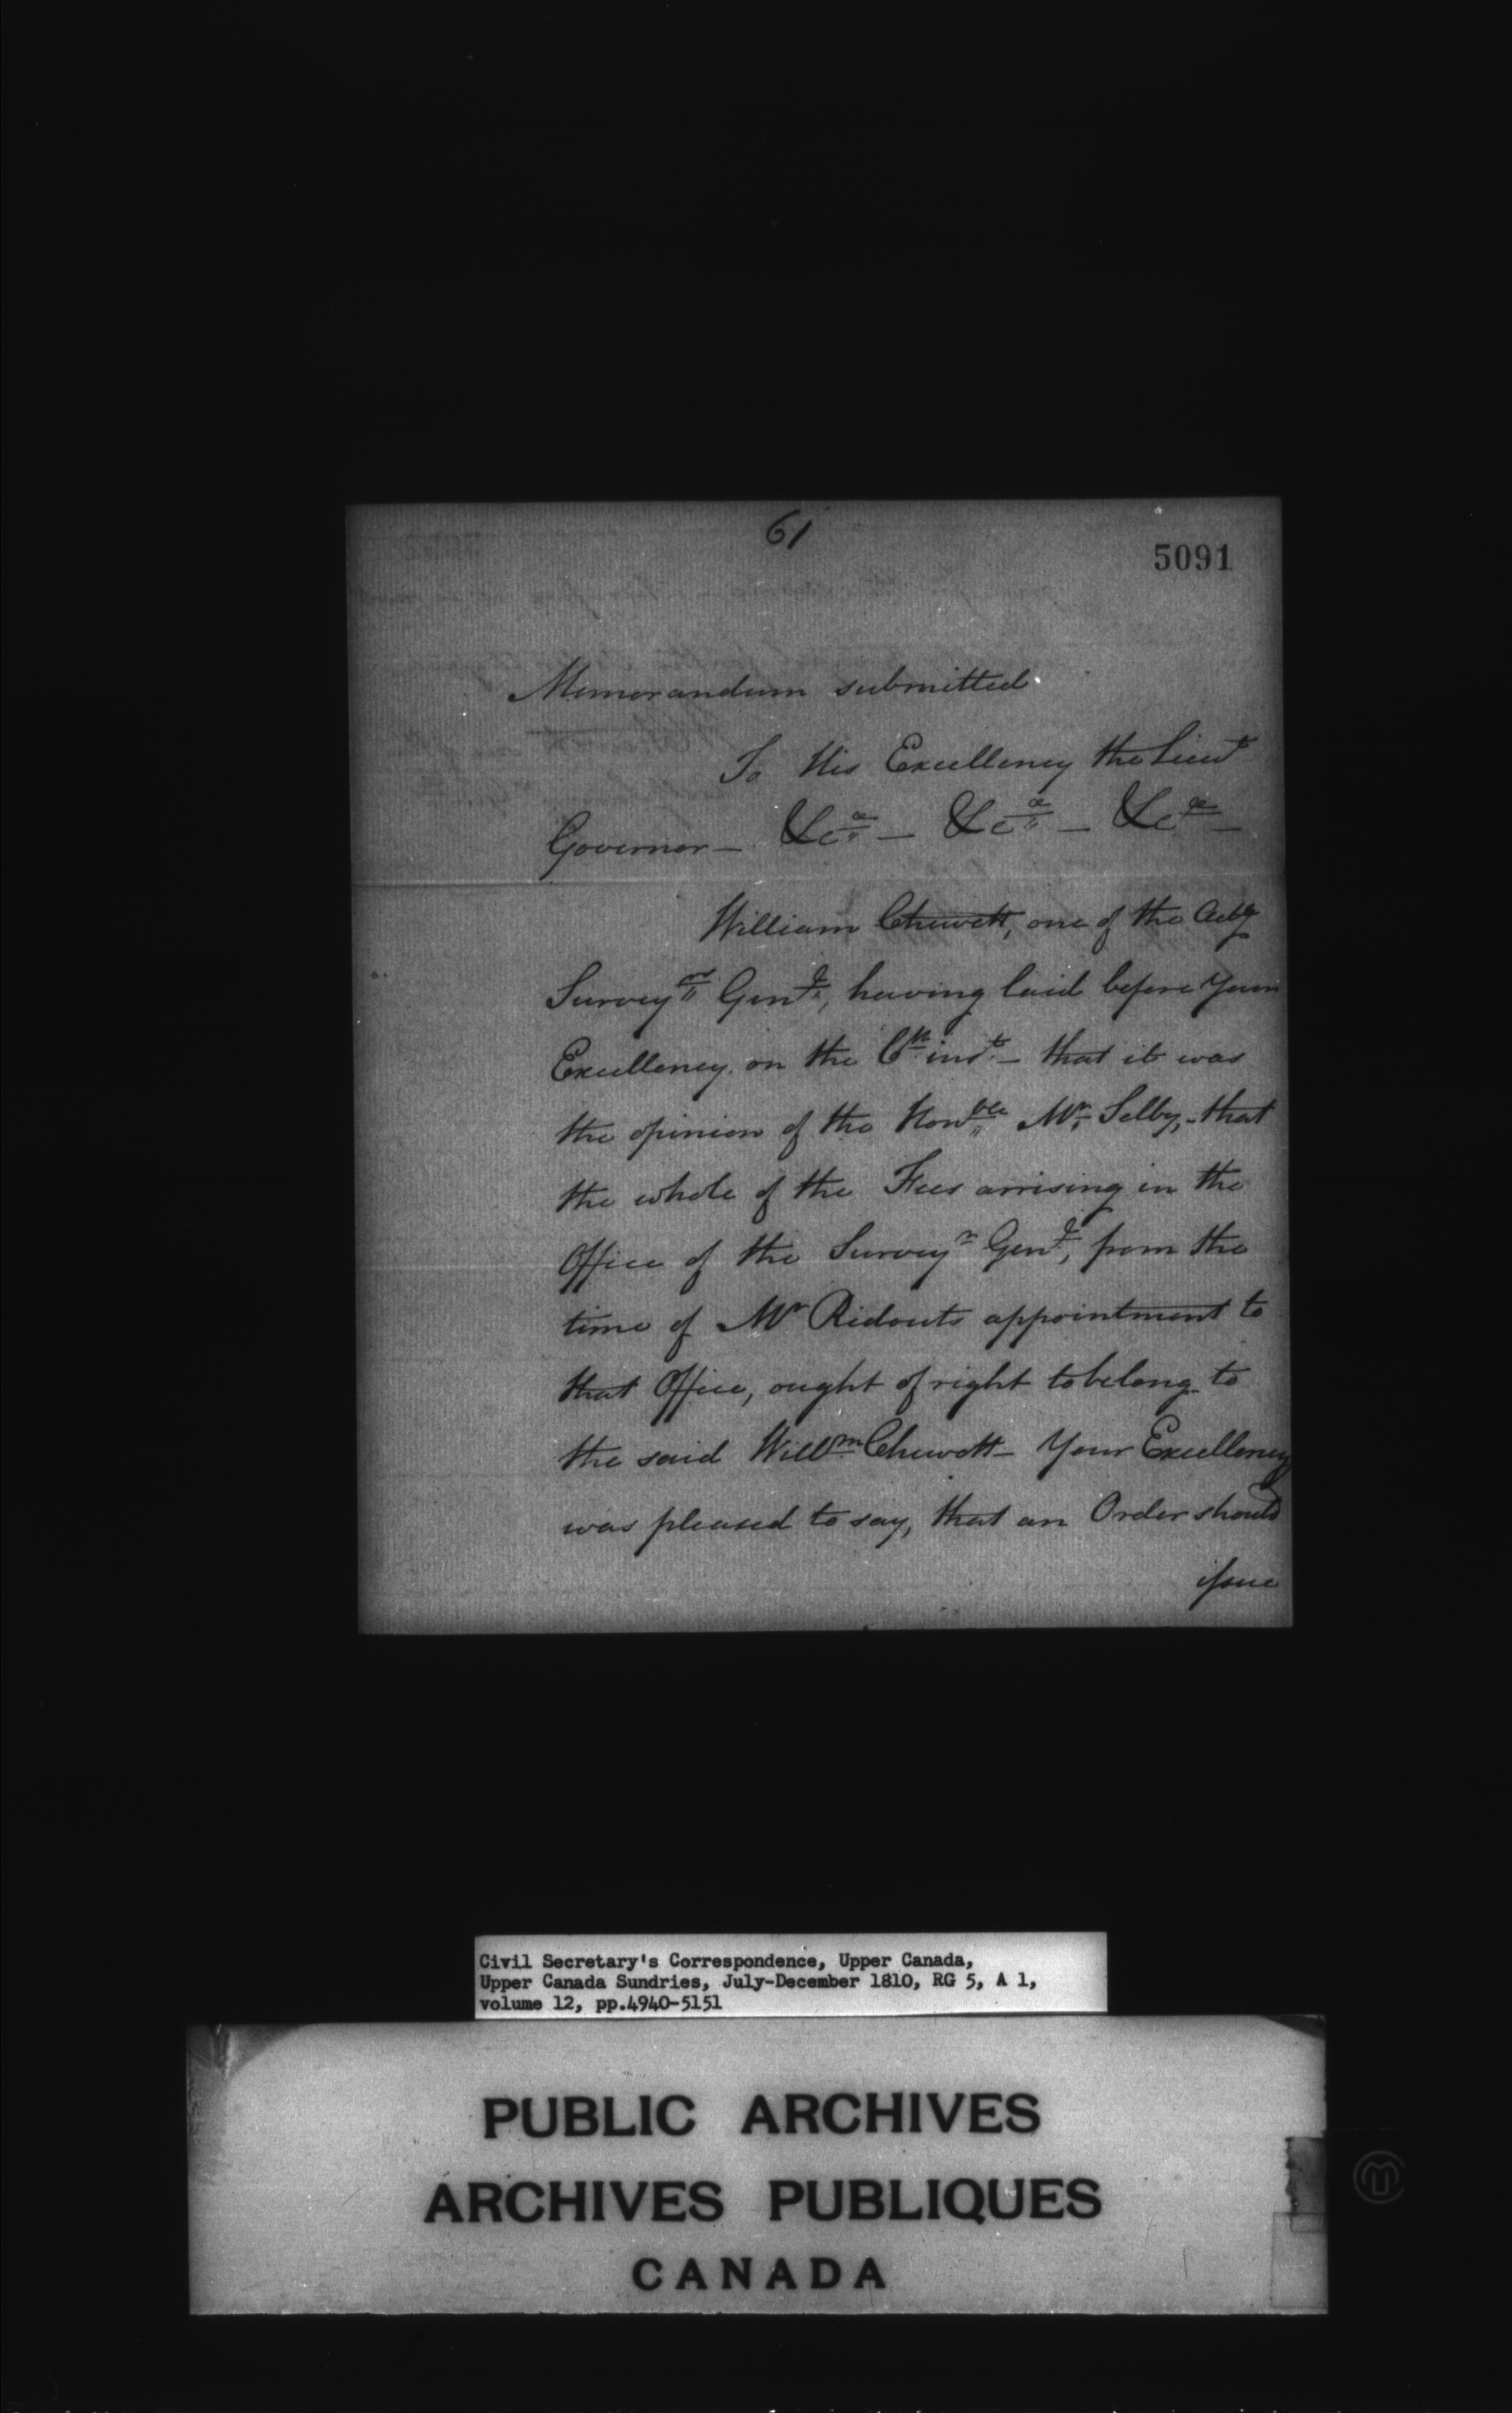 61
5091
Memorandum submitted
To His Excellency the Lieut
Governor — &ca — &ca — &ca —
William Chewett, one of the Actg
Surveyrs Genl, having laid before Your
Excellency on the 6th inst — that it was
the opinion of the Honble Mr Selby, - that
the whole of the Fees arrising in the
Office of the Surveyr Genl, from the
time of Mr Ridouts appointment to
that Office, ought of right to belong to
the said Willm Chewett — Your Excellency
was pleased to say, that an Order should
issue
Civil Secretary's Correspondence, Upper Canada,
Upper Canada Sundries, July-December 1810, RG 5, A 1,
volume 12, pp.4940-5151
PUBLIC ARCHIVES
ARCHIVES PUBLIQUES
CANADA